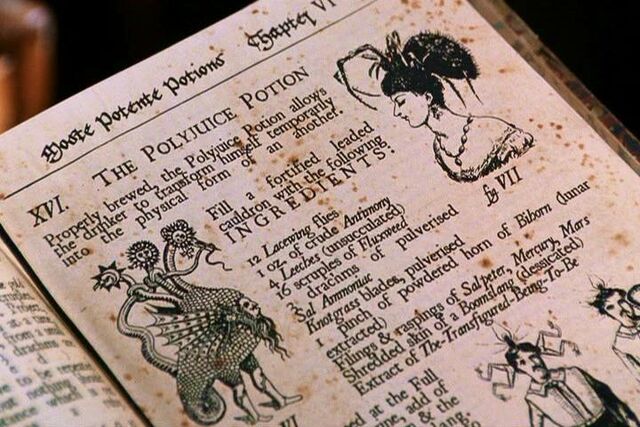 Moste Potente Potions Chapter VI
XVI. THE POLYJUICE POTION
Properly brewed, the Polyjuice Potion allows
the drinker to transform himself temporarily
into the physical form of an another.
Fill a fortified leaded
cauldron with the following
INGREDIENTS.
fig VII
12 Lacewing flies
1 oz of crude Antimony
4 Leeches (unsucculated)
16 scruples of Fluxweed
drachms of pulverised
Sal Ammoniac
Knotgrass blades, pulverised
1 pinch of powdered horn of Biborn (lunar
extracted)
Filings & raspings of Salpeter, Mercury, Mars
Shredded skin of a Boomslang (dessicated)
Extract of The-Transfigured-Being-To-Be
at the Full
add of
& the